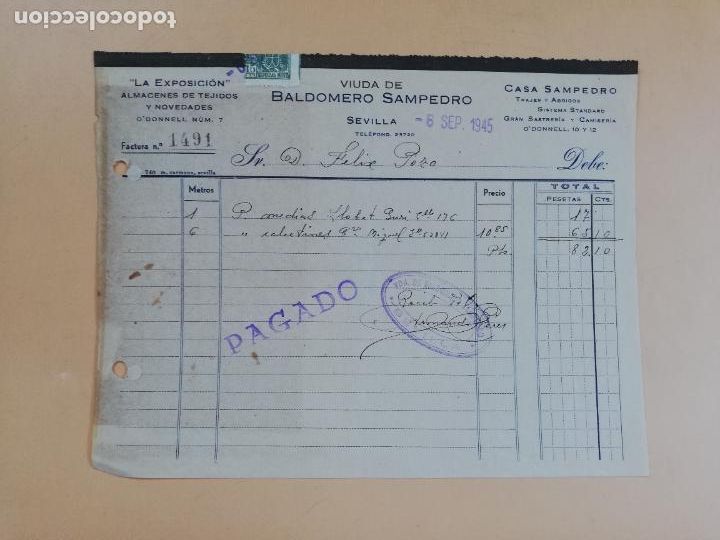 todocoleccion
"LA EXPOSICIÓN"
ALMACENES DE TEJIDOS
Y NOVEDADES
O'DONNELL NÚM. 7
Factura n.° 1491
VIUDA DE
BALDOMERO SAMPEDRO
SEVILLA
-6 SEP. 1945
TELÉFONO, 23720
CASA SAMPEDRO
TRAJES Y ABRIGOS
SISTEMA STANDARD
GRAN SASTRERÍA Y CAMISERÍA
O'DONNELL, 10 Y 12
Sr. D. Felix Pozo Debe:
Metros Precio TOTAL
PESETAS CTS.
1 P. medias 17
6 " calcetines Miguel 10 85 65 10
Pts. 82 10
PAGADO
Recibí
Fernando
todocoleccion